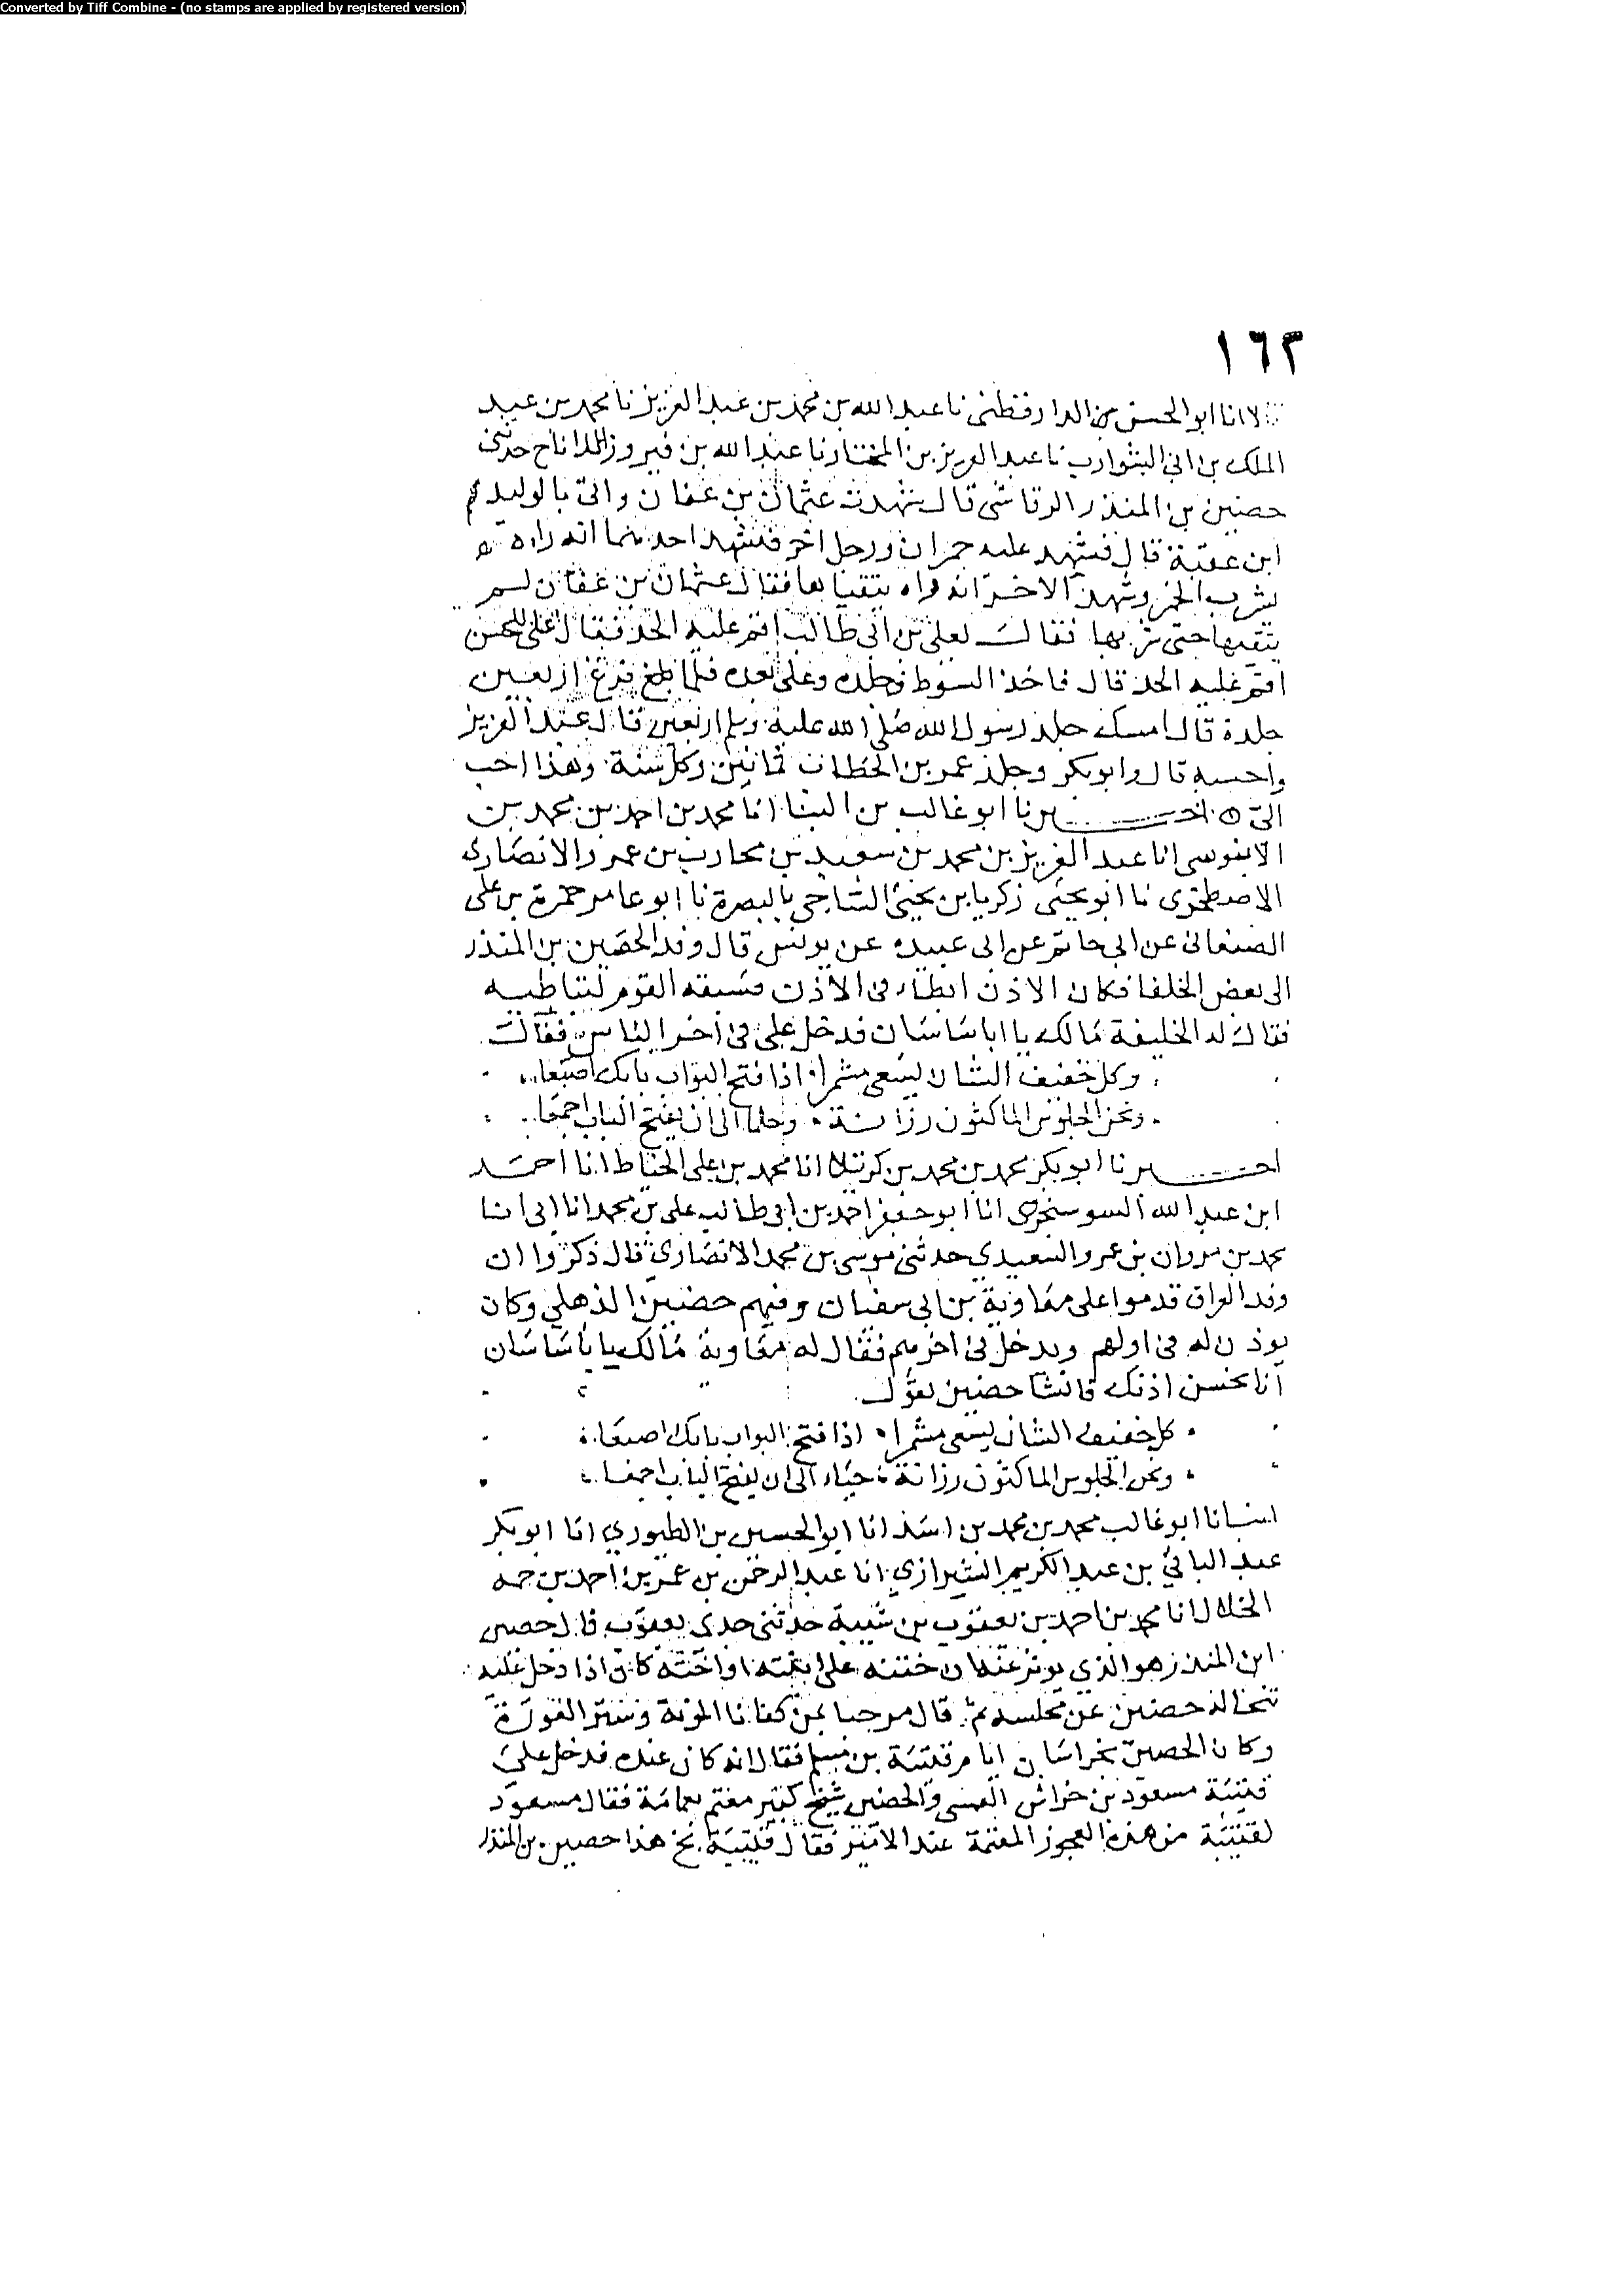 Converted by Tiff Combine - (no stamps are applied by registered version)
١٦٣
لا انا ابو الحسن بن الدارقطنى نا عبد الله بن محمد بن عبد العزيز نا محمد بن عبيد
الملك بن ابى الشوارب نا عبد العزيز بن المختار نا عبد الله بن فيروز الداناج حدثنى
حضين بن المنذر الرقاشى قال شهدت عثمان بن عفان واتى بالوليد
ابن عقبة قال فشهد عليه حمران ورجل اخر فشهد احدهما انه راه
يشرب الخمر وشهد الاخر انه راه يتقياها فقال عثمان بن عفان لم
يتقيها حتى شربها فقال لعلى بن ابى طالب اقم عليه الحد فقال على للحسن
اقم عليه الحد قال فاخذ السوط فجلده وعلى يعده فلما بلغ فرغ اربعين
جلدة قال امسك جلد رسول الله صلى الله عليه وسلم اربعين قال عبد العزيز
واحسبه قال وابو بكر وجلد عمر بن الخطاب ثمانين وكل سنة وهذا احب
الى اخبرنا ابو غالب بن البنا انا محمد بن احمد بن محمد بن
الابنوسى انا عبد العزيز بن محمد بن سعيد بن محارب بن عمرو الانصارى
الاصطخرى نا ابو يحيى زكريا بن يحيى الساجى بالبصرة نا ابو عامر حمزة بن على
الصنعانى عن ابى حاتم عن ابى عبيده عن يونس قال وفد الحضين بن المنذر
الى بعض الخلفا فكان الاذن ابطاء فى الاذن فسبقه القوم لتباطيه
فقال له الخليفة مالك يا ابا ساسان فدخل على فى اخر الناس فقال
وكل خفيف الشان يسعى مشمرا اذا فتح البواب بابك اصبعا
ونحن الجلوس الماكثون رزانة وحلما الى ان يفتح الباب اجمعا
اخبرنا ابو بكر محمد بن محمد بن كرتيلا انا محمد بن على الخياط انا احمد
ابن عبد الله السوسنجردى انا ابو جعفر احمد بن ابى طالب على بن محمد انا ابى انا
محمد بن مروان بن عمرو السعيدي حدثنى موسى بن محمد الانصارى قال ذكروا ان
وفد العراق قدموا على معاوية بن ابى سفيان وفيهم حضين الذهلي وكان
يوذن له فى اولهم ويدخل فى اخرهم فقال له معاوية مالك يابا ساسان
انا نحسن اذنك فانشا حضين يقول
كل خفيف الشان يسعى مشمرا اذا فتح البواب بابك اصبعا
ونحن الجلوس الماكثون رزانة حياء الى ان يفتح الباب اجمعا
انبانا ابو غالب محمد بن محمد بن اسد انا ابو الحسين بن الطيوري انا ابو بكر
عبد الباقي بن عبد الكريم الشيرازي انا عبد الرحمن بن عمر بن احمد بن حمه
الخلال انا محمد بن احمد بن يعقوب بن شيبة حدثنى جدى يعقوب قال حصين
ابن المنذر هو الذي يوثر عنه ان ختنه على ابنته او اخته كان اذا دخل عليه
تنحا له حضين عن مجلسه ثم قال مرحبا بمن كفانا المونة وستر العورة
وكان الحصين بخراسان ايام قتيبة بن مسلم فقال انه كان عنده فدخل على
قتيبة مسعود بن خراش العبسى والحضين شيخ كبير معتم بعمامة فقال مسعود
لقتيبة من هذه العجوز المعتمة عند الامير فقال قتيبة بخ هذا حصين بن المنذر